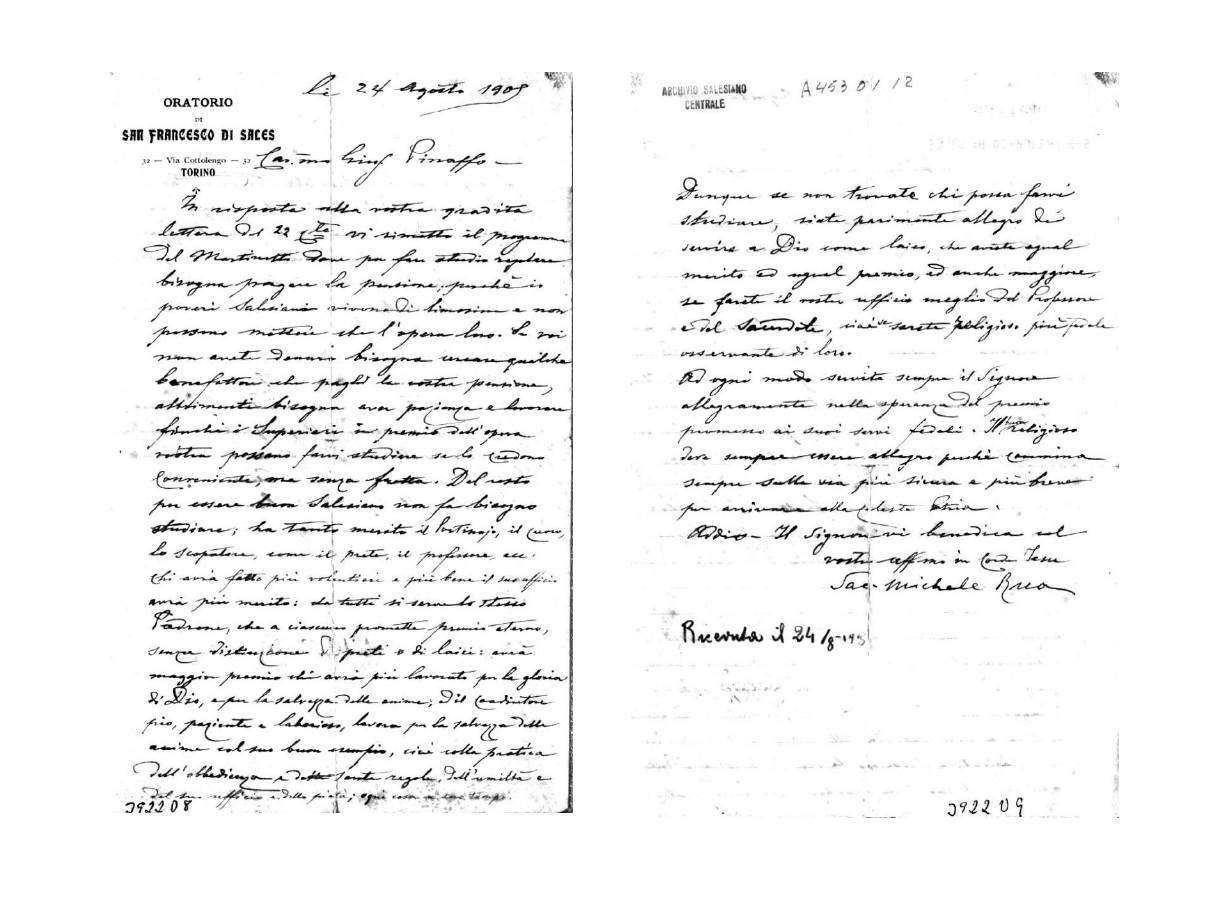 li 24 Agosto 1905
ORATORIO
DI
SAN FRANCESCO DI SALES
32 — Via Cottolengo — 32
TORINO
Car.mo Luigi Pinaffo —
In risposta alla vostra gradita
lettera del 22 vi rimetto il programma
del Martinetto dove per fare studio regolare
bisogna pagare la pensione, perchè i
poveri Salesiani vivono di limosina e non
possono mettere che l'opera loro. Se voi
non avete denaro bisogna cercare qualche
benefattore che paghi la vostra pensione,
altrimenti bisogna aver pazienza e lavorare
finchè i Superiori in premio dell'opera
vostra possano farvi studiare se lo credono
conveniente, ma senza fretta. Del resto
per essere buon Salesiano non fa bisogno
studiare; ha tanto merito il Portinajo, il cuoco,
lo scopatore, come il prete, il professore, ecc.
Chi avrà fatto più volentieri e più bene il suo ufficio
avrà più merito: da tutti si serve lo stesso
Padrone, che a ciascuno promette premio eterno,
senza distinzione di preti o di laici: avrà
maggior premio chi avrà più lavorato per la gloria
di Dio, e per la salvezza delle anime; ed il coadiutore
pio, paziente e laborioso, lavora per la salvezza delle
anime col suo buon esempio, cioè colla pratica
dell'obbedienza e delle sante regole, dell'umiltà e
del suo ufficio e della pietà; ogni cosa a suo tempo.
3922 08
ARCHIVIO SALESIANO
CENTRALE
A 453 01 12
Dunque se non trovate chi possa farvi
studiare, siate parimente allegro di
servire a Dio come laico, che avrete egual
merito ed ugual premio, ed anche maggiore,
se farete il vostro ufficio meglio del Professore
e del Sacerdote, cioè se sarete religioso più fedele
osservante di loro.
Ad ogni modo servite sempre il Signore
allegramente nella speranza del premio
promesso ai suoi servi fedeli. Il buon religioso
deve sempre essere allegro perchè cammina
sempre sulla via più sicura e più breve
per arrivare alla celeste Patria.
Addio - Il Signore vi benedica col
vostro aff.mo in Corde Jesu
Sac. Michele Rua
Ricevuta il 24/8-905
3922 09